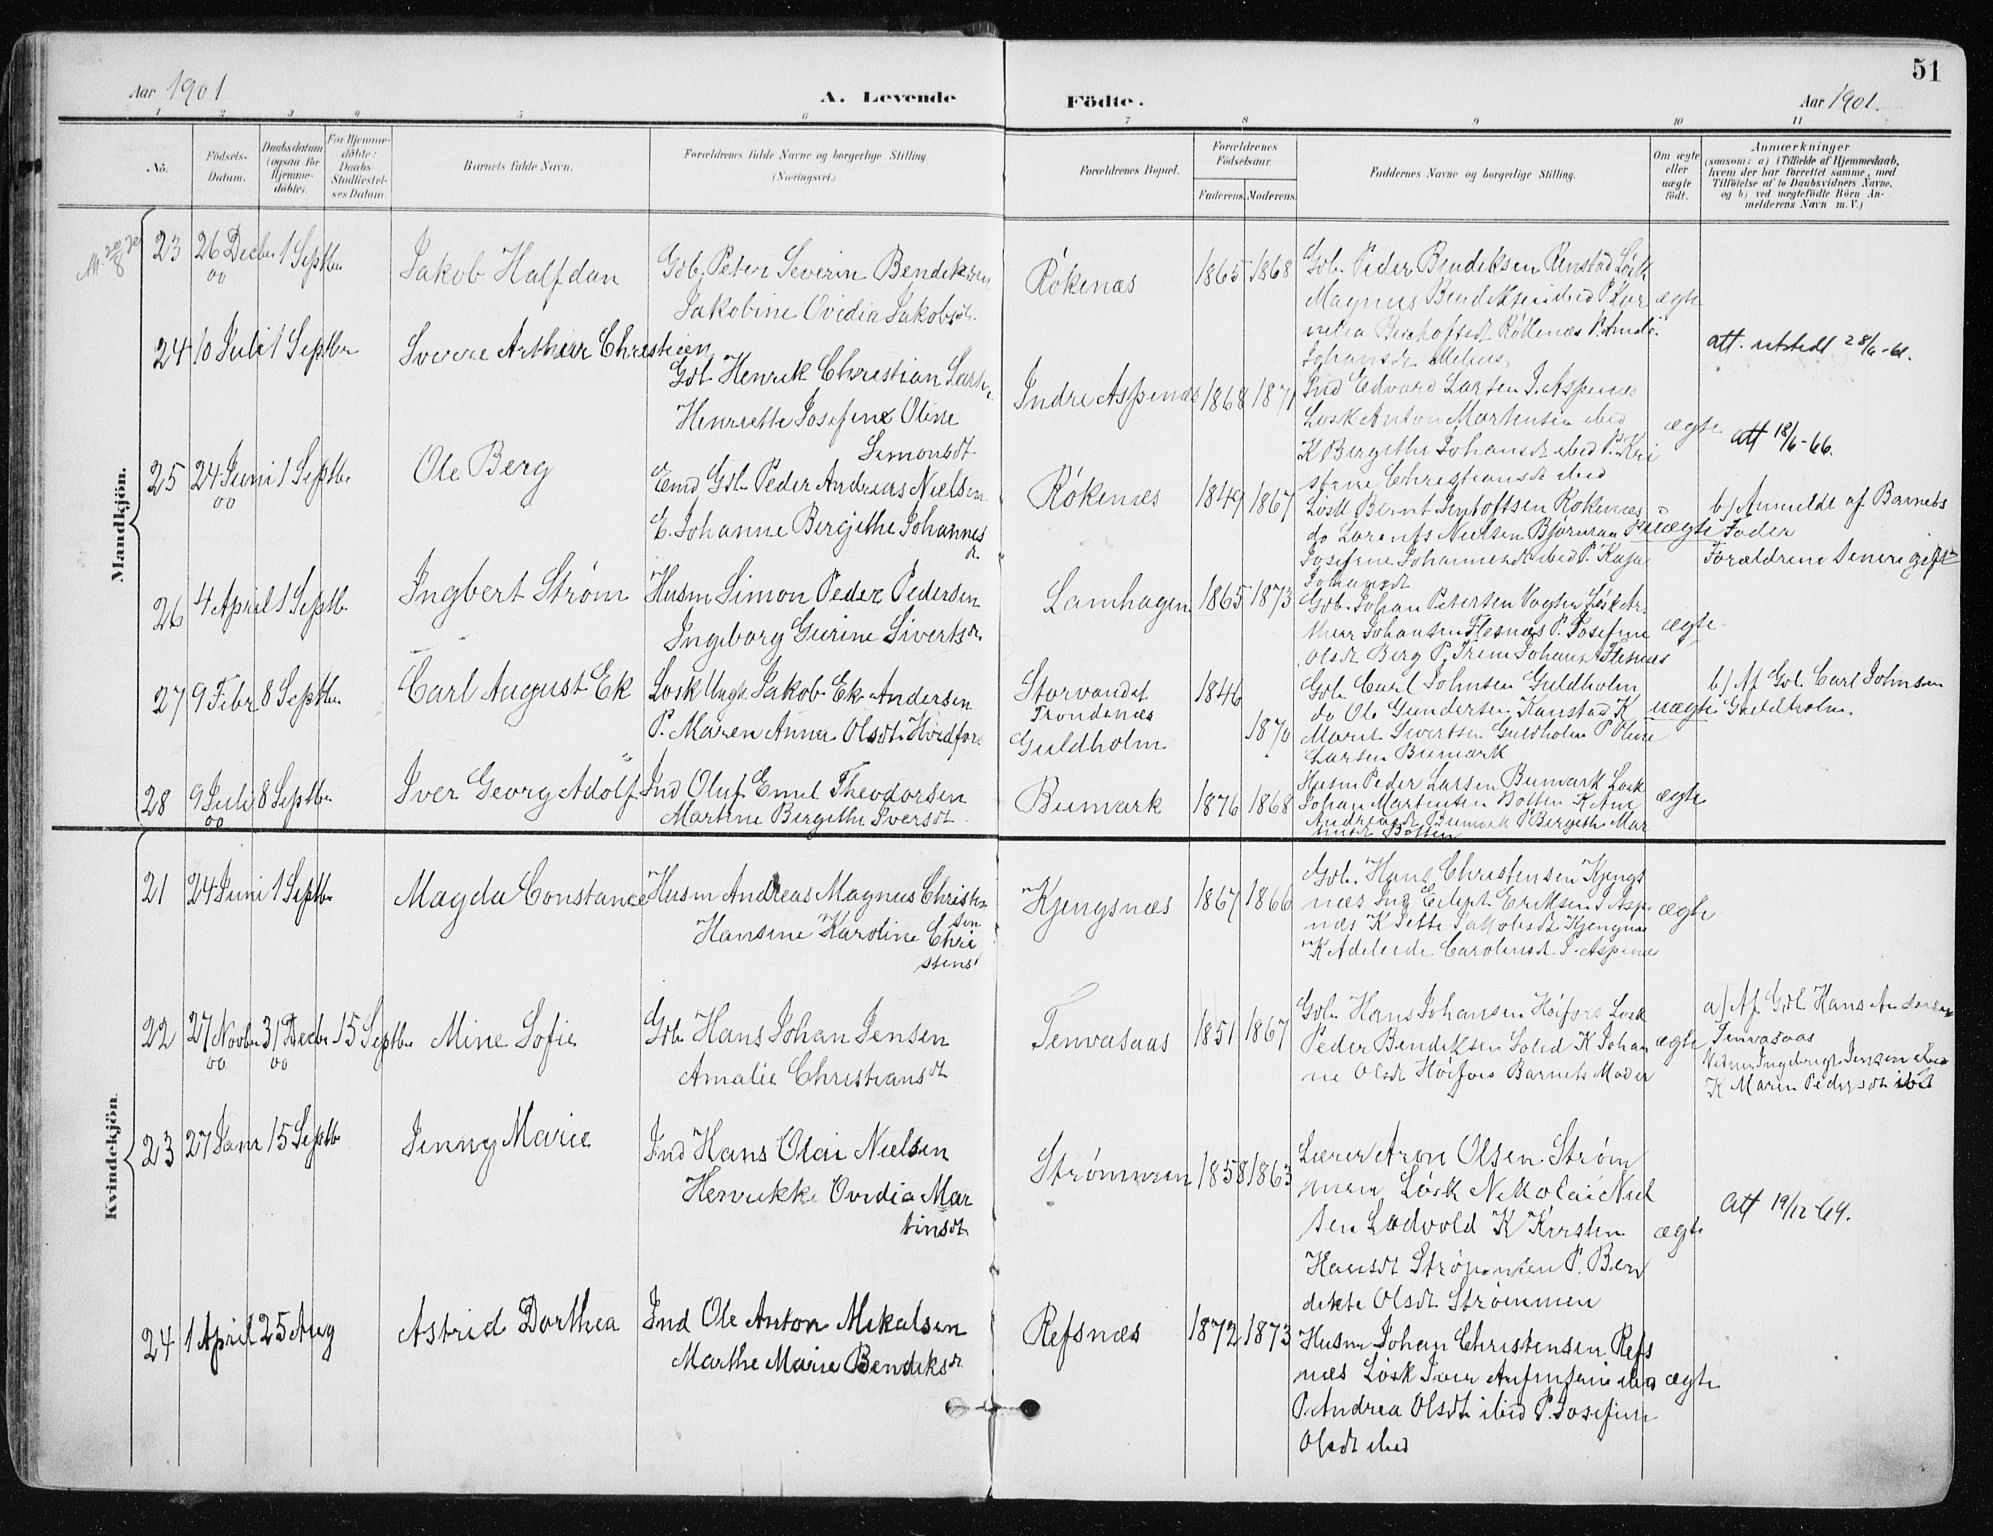 51
Aar 1901
A. Levende
Födte.
Aar 1901.
1 2 3 4 5 6 7 8 9 10 11
No.
Födsels-
Datum.
Daabsdatum
(ogsaa for
Hjemme-
döbte).
For Hjemme-
döbte:
Daabs-
Stadfæstel-
ses Datum.
Barnets fulde Navn.
Forældrenes fulde Navne og borgerlige Stilling
(Næringsvei.)
Forældrenes Bopæl.
Forældrenes
Födselsaar.
Faderens. Moderens.
Faddernes Navne og borgerlige Stilling.
Om ægte
eller
uægte
födt.
Anmærkninger
(saasom: a) i Tilfælde af Hjemmedaab,
hvem der har forrettet samme, med
Tilföielse af to Daabsvidners Navne,
og b) ved uægtefödte Börn An-
melderens Navn m. V.)
Mandkjön.
23 26 Decbr 1 Septbr
00
Jakob Halfdan
Gdb. Peter Severin Bendiksen
Jakobine Ovidia Jakobsdt.
Rökenæs
1865 1868
Gdb. Peder Bendiksen Renstad Løsk
Magnus Bendiksen ibid P. Kor
nelia Rökenæs P.
Johansdt
ægte
24 10 Juli 1 Septbr
Sverre Arthur Christian
Gdb Henrik Christian Lars.
Henriette Josefine Oline
Simonsdt.
Indre Aspenæs
1868 1871
Ind Edvard Larsen I. Aspenæs
Løsk Anton Martensen ibid
K Bergithe Johansdt ibid P. Kri
stine Christiansdt ibid
ægte
att. utstedt 28/6-61.
att 18/6-66.
25 24 Juni 1 Septbr
00
Ole Berg
Emd Gdb. Peder Andreas Nielsen
E. Johanne Bergithe Johannes
dt
Rökenæs
1849 1867
Løsk Bernt Rökenæs
do Nielsen
Josefine Johannesdt ibid P. Kaja
Johansdt
uægte
b) Anmeldt af Barnets
Fader
Forældrene senere gift
26 4 April 1 Septb.
Ingbert Strøm
Husm Simon Peder Pedersen
Ingeborg Gurine Sivertsdt.
Lamhagen
1865 1873
Gdb. Johan Petersen Løsk Ar
thur Johansen Flesnæs P. Josefine
Olsdt Berg P. Trine Johansdt Flesnæs
ægte
27 9 Febr 8 Septbr
Carl August Ek
Løsk Ungk. Jakob Ek Andersen
P. Maren Anna Olsdt. Hvidfor
Storvandet
Trondenæs
Guldholm
1846
1870
Gdb. Carl Johnsen Guldholm
do Ole Gundersen Kanstad K
Marit Sivertsen Guldholm P Oline
Larsen Bumark
uægte
b) Af Gdb. Carl Johnsen
Guldholm.
28 9 Juli 8 Septbr
00
Iver Georg Adolf
Ind Oluf Emil Theodorsen
Martine Bergithe Iversdt.
Bumark
1876 1868
Husm Peder Larsen Bumark Løsk
Johan Martensen Botten K Ane
Andreasdt Bumark P Bergithe Mar
Botten
ægte
Kvindekjön
21 24 Juni 1 Septbr
Magda Constance
Husm Andreas Magnus Christen
sen
Hansine Karoline Chri
stens
Kjengsnæs
1867 1866
Gdb. Hans Christensen Kjengs
næs Ind Eilert Eriksen I Asp.
næs K Jette Jakobsdt Kjengsnæs
K Adeleide Carolinsdt I. Aspenæs
ægte
22 27 Novbr 31 Decbr 15 Septbr
00 00
Mine Sofie
Gdb Hans Johan Jensen
Amalie Christiansdt
Tenvasaas
1851 1867
Gdb. Hans Johansen Höifors Løsk
Peder Bendiksen K Johan
ne Olsdt Höifors Barnets Moder
ægte
a) Af Gdb Hans Andersen
Tenvasaas
Vidner Ingebrigt Jensen ibid
K Maren Pedersdt ibid
23 27 Janr 15 Septbr
Jenny Marie
Ind Hans Olai Nielsen
Henrikke Ovidia Mar
tinsdt
Strømmen
1858 1863
Lærer Aron Olsen Strøm
men Løsk Nikolai Niel
sen Ladvold K Kirsten
Hansdt Strømmen P. Ben
dikte Olsdt Strømmen
ægte
att 19/12-64.
24 1 April 25 Aug
Astrid Dorthea
Ind Ole Anton Mikalsen
Marthe Marie Bendiksdt
Refsnæs
1872 1873
Husm Johan Christensen Refs
næs Løsk Iver ibid
P. Andrea Olsdt ibid P. Josefine
Olsdt ibid
ægte